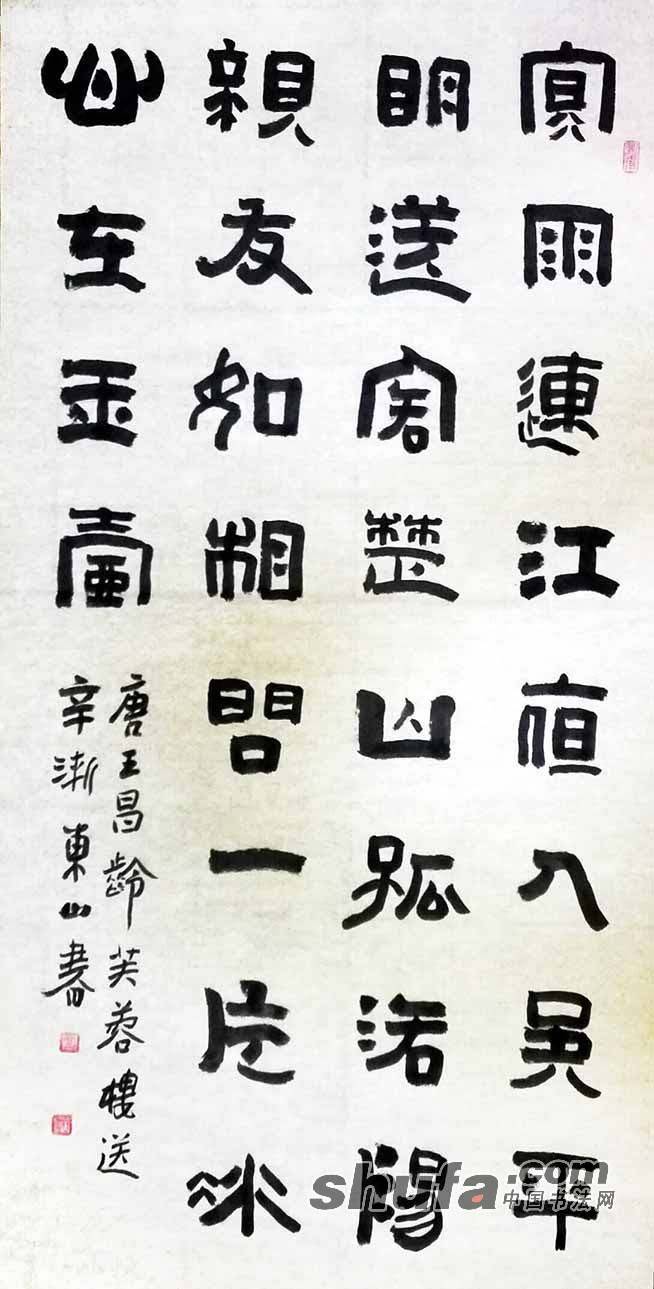 寒雨連江夜入吳平
明送客楚山孤洛陽
親友如相問一片冰
心在玉壺
唐王昌齡芙蓉樓送
辛漸東山書
shufa.com
中国书法网